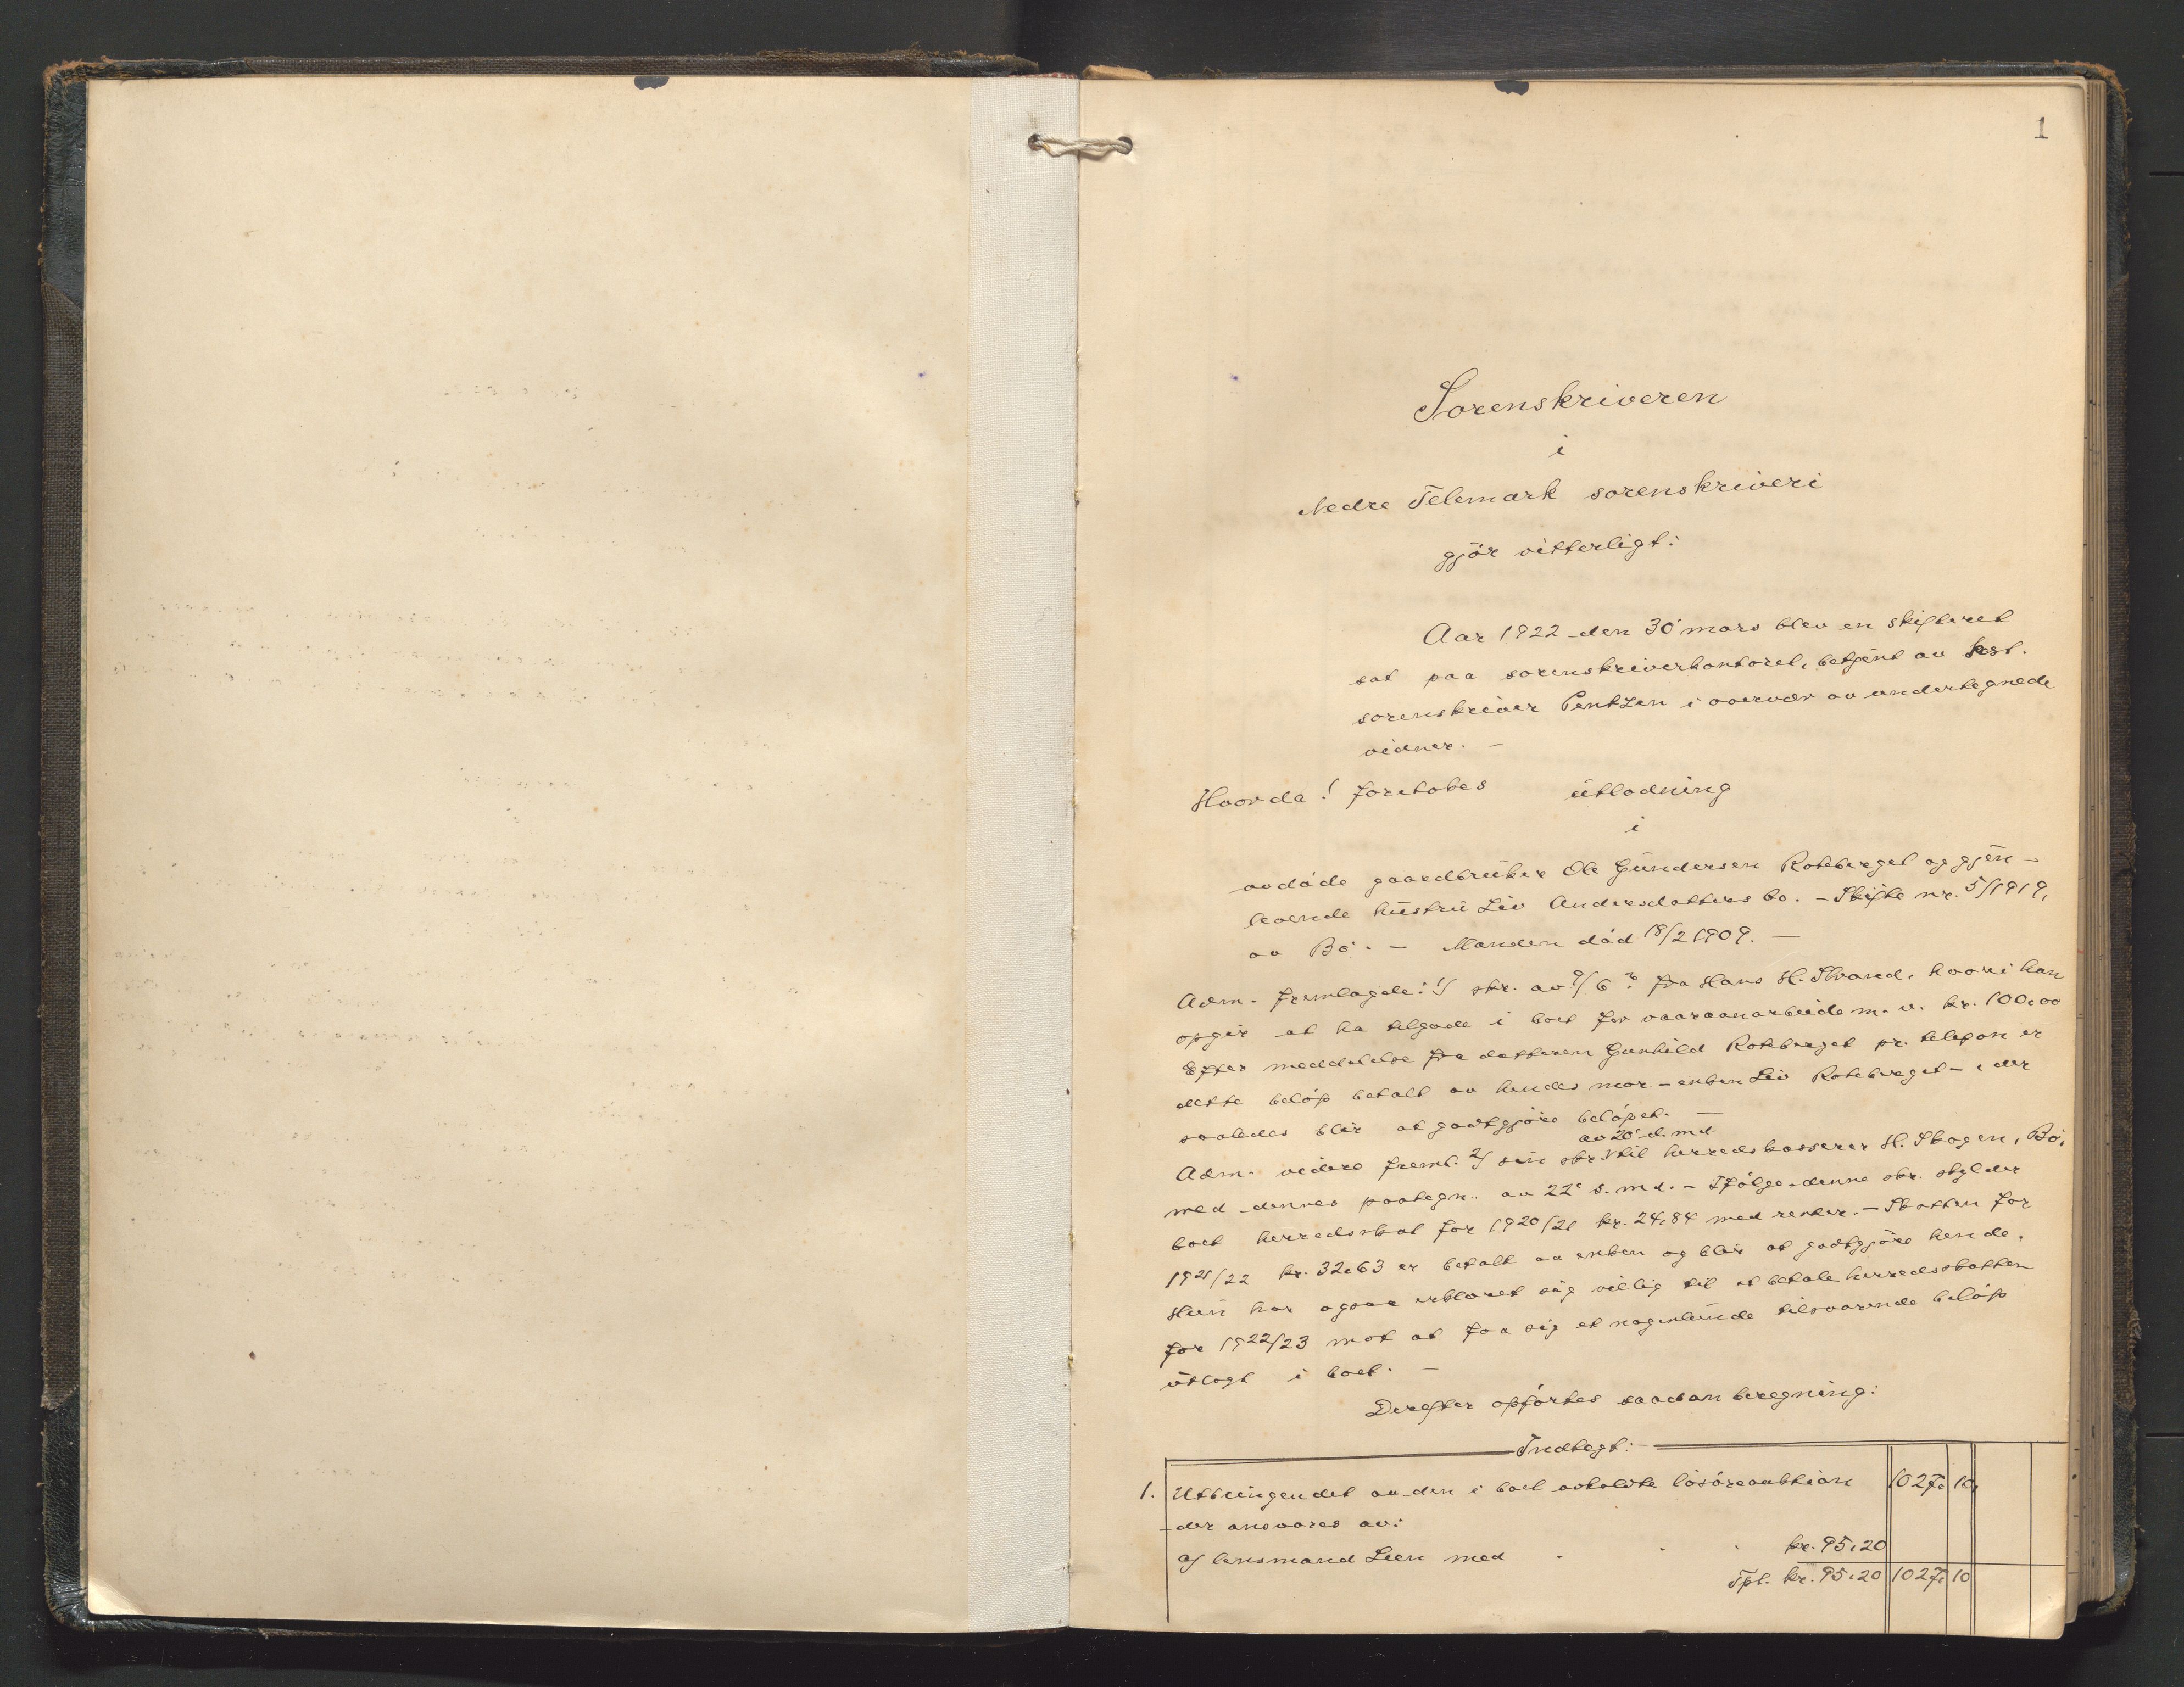 1
Sorenskriveren
i
Nedre Telemark sorenskriveri
gjör vitterligt:
Aar 1922 den 30' mars blev en skifteret
sat paa sorenskriverkontoret, betjent av kst.
sorenskriver Bentzen i overvær av undertegnede
vidner. –
Hvorda! foretokes utlodning
i
avdöde gaardbruker Ole Gundersen Roteberget og gjen-
levende hustru Liv Andersdatters bo. – Skifte nr. 5/1919,
av Bö. – Manden död 18/2 1909. –
Adm. fremlagde: 1/ skr. av 9/6 fra Hans H. Strand, hvori han
opgir at ha tilgode i boet for vaaraanarbeide m. v. kr. 100,00
Efter meddelelse fra datteren Gunhild Roteberget pr. telefon er
dette belöp betalt av hendes mor – enken Liv Roteberget – der
saaledes blir at godtgjöre belöpet. –
av 20' d. md.
Adm. videre freml. 2/ sin skr. til herredskasserer H. Skogen, Bö,
med dennes paategn. av 22' s. md. – Ifölge denne skr. skylder
boet herredsskat for 1920/21 kr. 24,84 med renter. – Skatten for
1921/22 kr. 32,63 er betalt av enken og blir at godtgjöre hende.
Hun har ogsaa erklæret sig villig til at betale herredsskatten
for 1922/23 mot at faa sig et nogenlunde tilsvarende belöp
utlagt i boet. –
Derefter opförtes saadan beregning:
Indtegt: –
1. Utbringendet av den i boet avholdte lösöreauktion 1027, 10,
der ansvares av:
a/ lensmand Lien med . . . kr. 95,20
Tpt. kr. 95,20 1027, 10